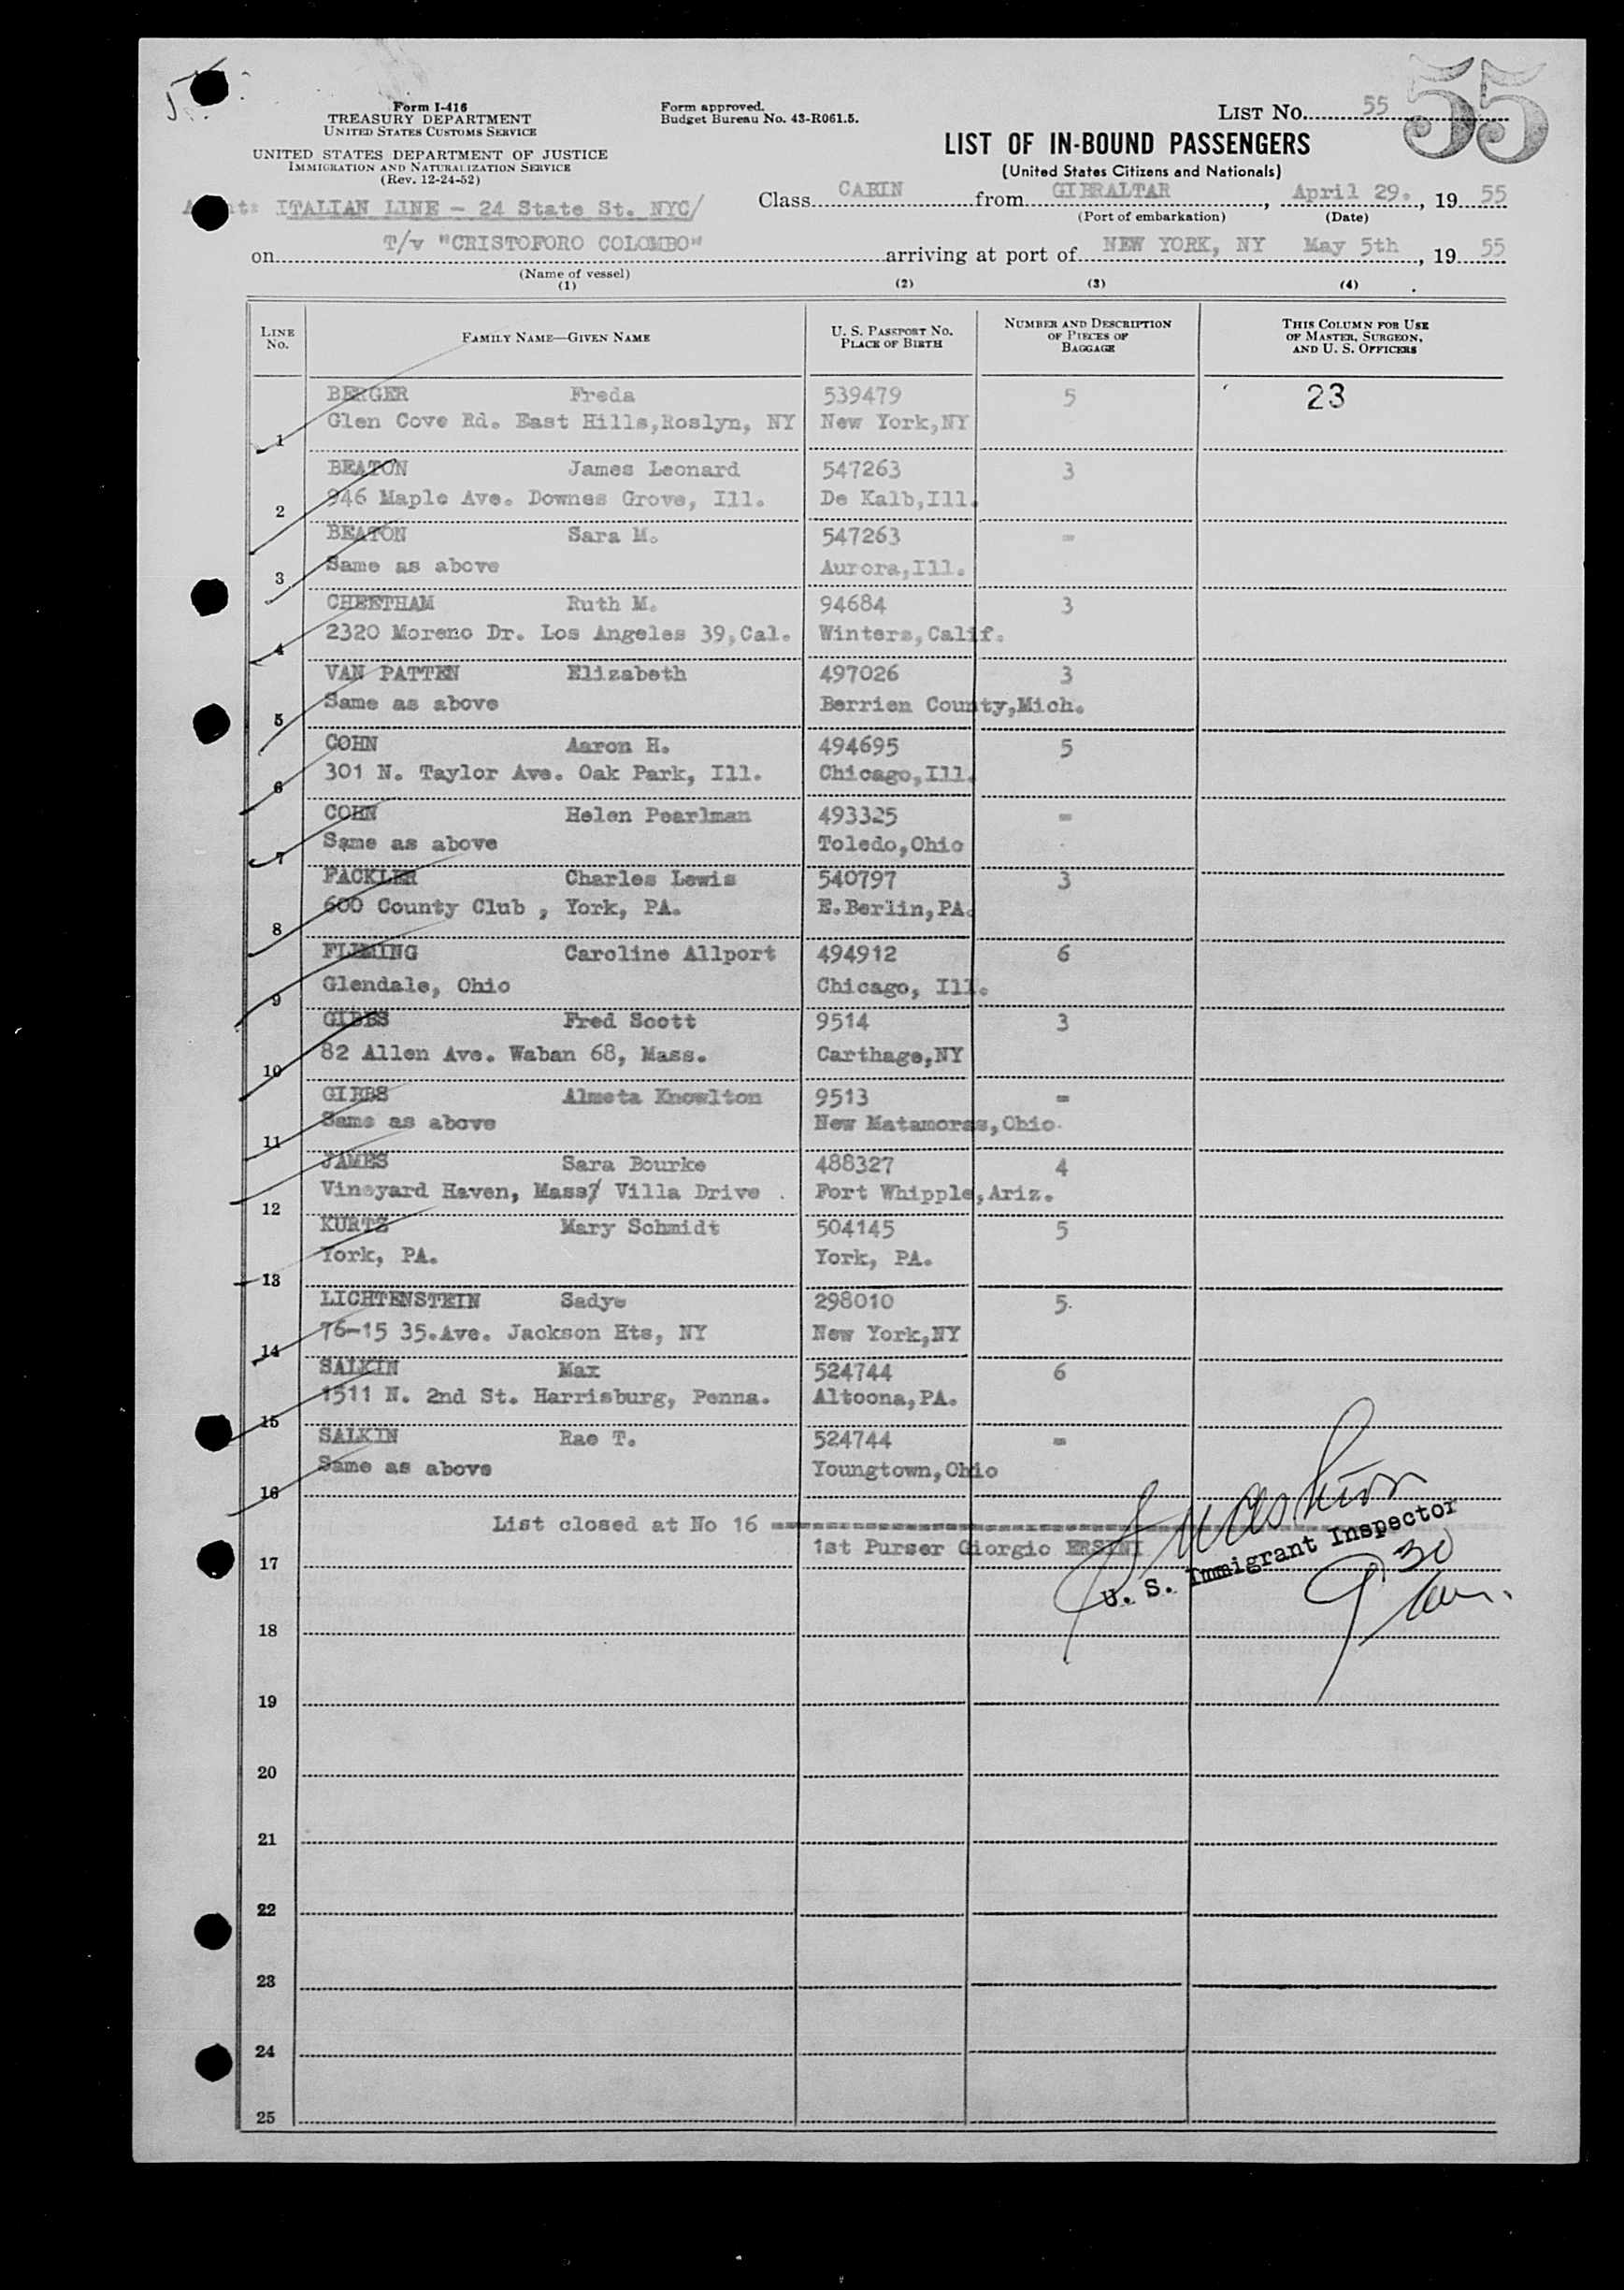 Form I-416
TREASURY DEPARTMENT
UNITED STATES CUSTOMS SERVICE
UNITED STATES DEPARTMENT OF JUSTICE
IMMIGRATION AND NATURALIZATION SERVICE
(Rev. 12-24-52)
Form approved.
Budget Bureau No. 43-R061.5.
LIST No. 55
55
LIST OF IN-BOUND PASSENGERS
(United States Citizens and Nationals)
ITALIAN LINE - 24 State St. NYC/
Class CABIN from GIBRALTAR, April 29., 19 55
(Port of embarkation) (Date)
on T/v "CRISTOFORO COLOMBO" arriving at port of NEW YORK, NY May 5th, 19 55
(Name of vessel)
(1) (2) (3) (4)
LINE No. FAMILY NAME—GIVEN NAME U. S. PASSPORT No. PLACE OF BIRTH NUMBER AND DESCRIPTION OF PIECES OF BAGGAGE THIS COLUMN FOR USE OF MASTER, SURGEON, AND U. S. OFFICERS
BERGER Freda 539479 5 23
1 Glen Cove Rd. East Hills,Roslyn, NY New York,NY
BEATON James Leonard 547263 3
2 946 Maple Ave. Downes Grove, Ill. De Kalb,Ill.
BEATON Sara M. 547263 =
3 Same as above Aurora,Ill.
CHEETHAM Ruth M. 94684 3
4 2320 Moreno Dr. Los Angeles 39,Cal. Winters,Calif.
VAN PATTEN Elizabeth 497026 3
5 Same as above Berrien County,Mich.
COHN Aaron H. 494695 5
6 301 N. Taylor Ave. Oak Park, Ill. Chicago,Ill.
COHN Helen Pearlman 493325 =
7 Same as above Toledo,Ohio
FACKLER Charles Lewis 540797 3
8 600 County Club , York, PA. E.Berlin,PA.
FLEMING Caroline Allport 494912 6
9 Glendale, Ohio Chicago, Ill.
GIBBS Fred Scott 9514 3
10 82 Allen Ave. Waban 68, Mass. Carthage,NY
GIBBS Almeta Knowlton 9513 =
11 Same as above New Matamoras,Ohio
JAMES Sara Bourke 488327 4
12 Vineyard Haven, Mass/ Villa Drive Fort Whipple,Ariz.
KURTZ Mary Schmidt 504145 5
13 York, PA. York, PA.
LICHTENSTEIN Sadye 298010 5
14 76-15 35.Ave. Jackson Hts, NY New York,NY
SALKIN Max 524744 6
15 1511 N. 2nd St. Harrisburg, Penna. Altoona,PA.
SALKIN Rae T. 524744 =
16 Same as above Youngtown,Ohio
List closed at No 16
17 1st Purser Giorgio ERSINI
U. S. Immigrant Inspector
9 30 am.
18
19
20
21
22
23
24
25